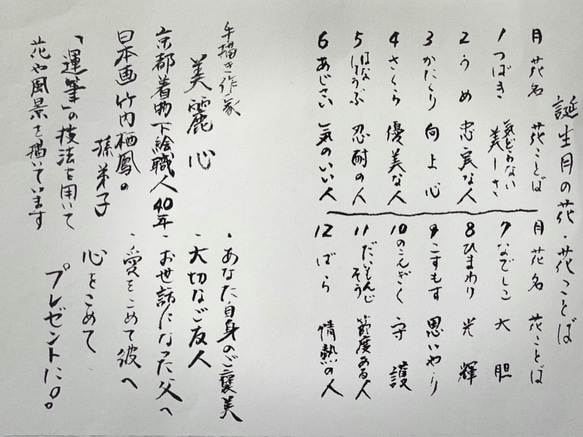 誕生月の花・花ことば
月 花名 花ことば
1 つばき 気どらない美しさ
2 うめ 忠実な人
3 かたくり 向上心
4 さくら 優美な人
5 はなしょうぶ 忍耐の人
6 あじさい 気のいい人
月 花名 花ことば
7 なでしこ 大胆
8 ひまわり 光輝
9 こすもす 思いやり
10 のこんぎく 守護
11 だいもんじそう 節度ある人
12 ばら 情熱の人
手描き作家
美麗 心
京都着物下絵職人40年
日本画 竹内栖鳳の
孫弟子
「運筆」の技法を用いて
花や風景を描いています
・あなた自身のご褒美
・大切なご友人
・お世話になった父へ
・愛をこめて彼へ
心をこめて
プレゼントに。。